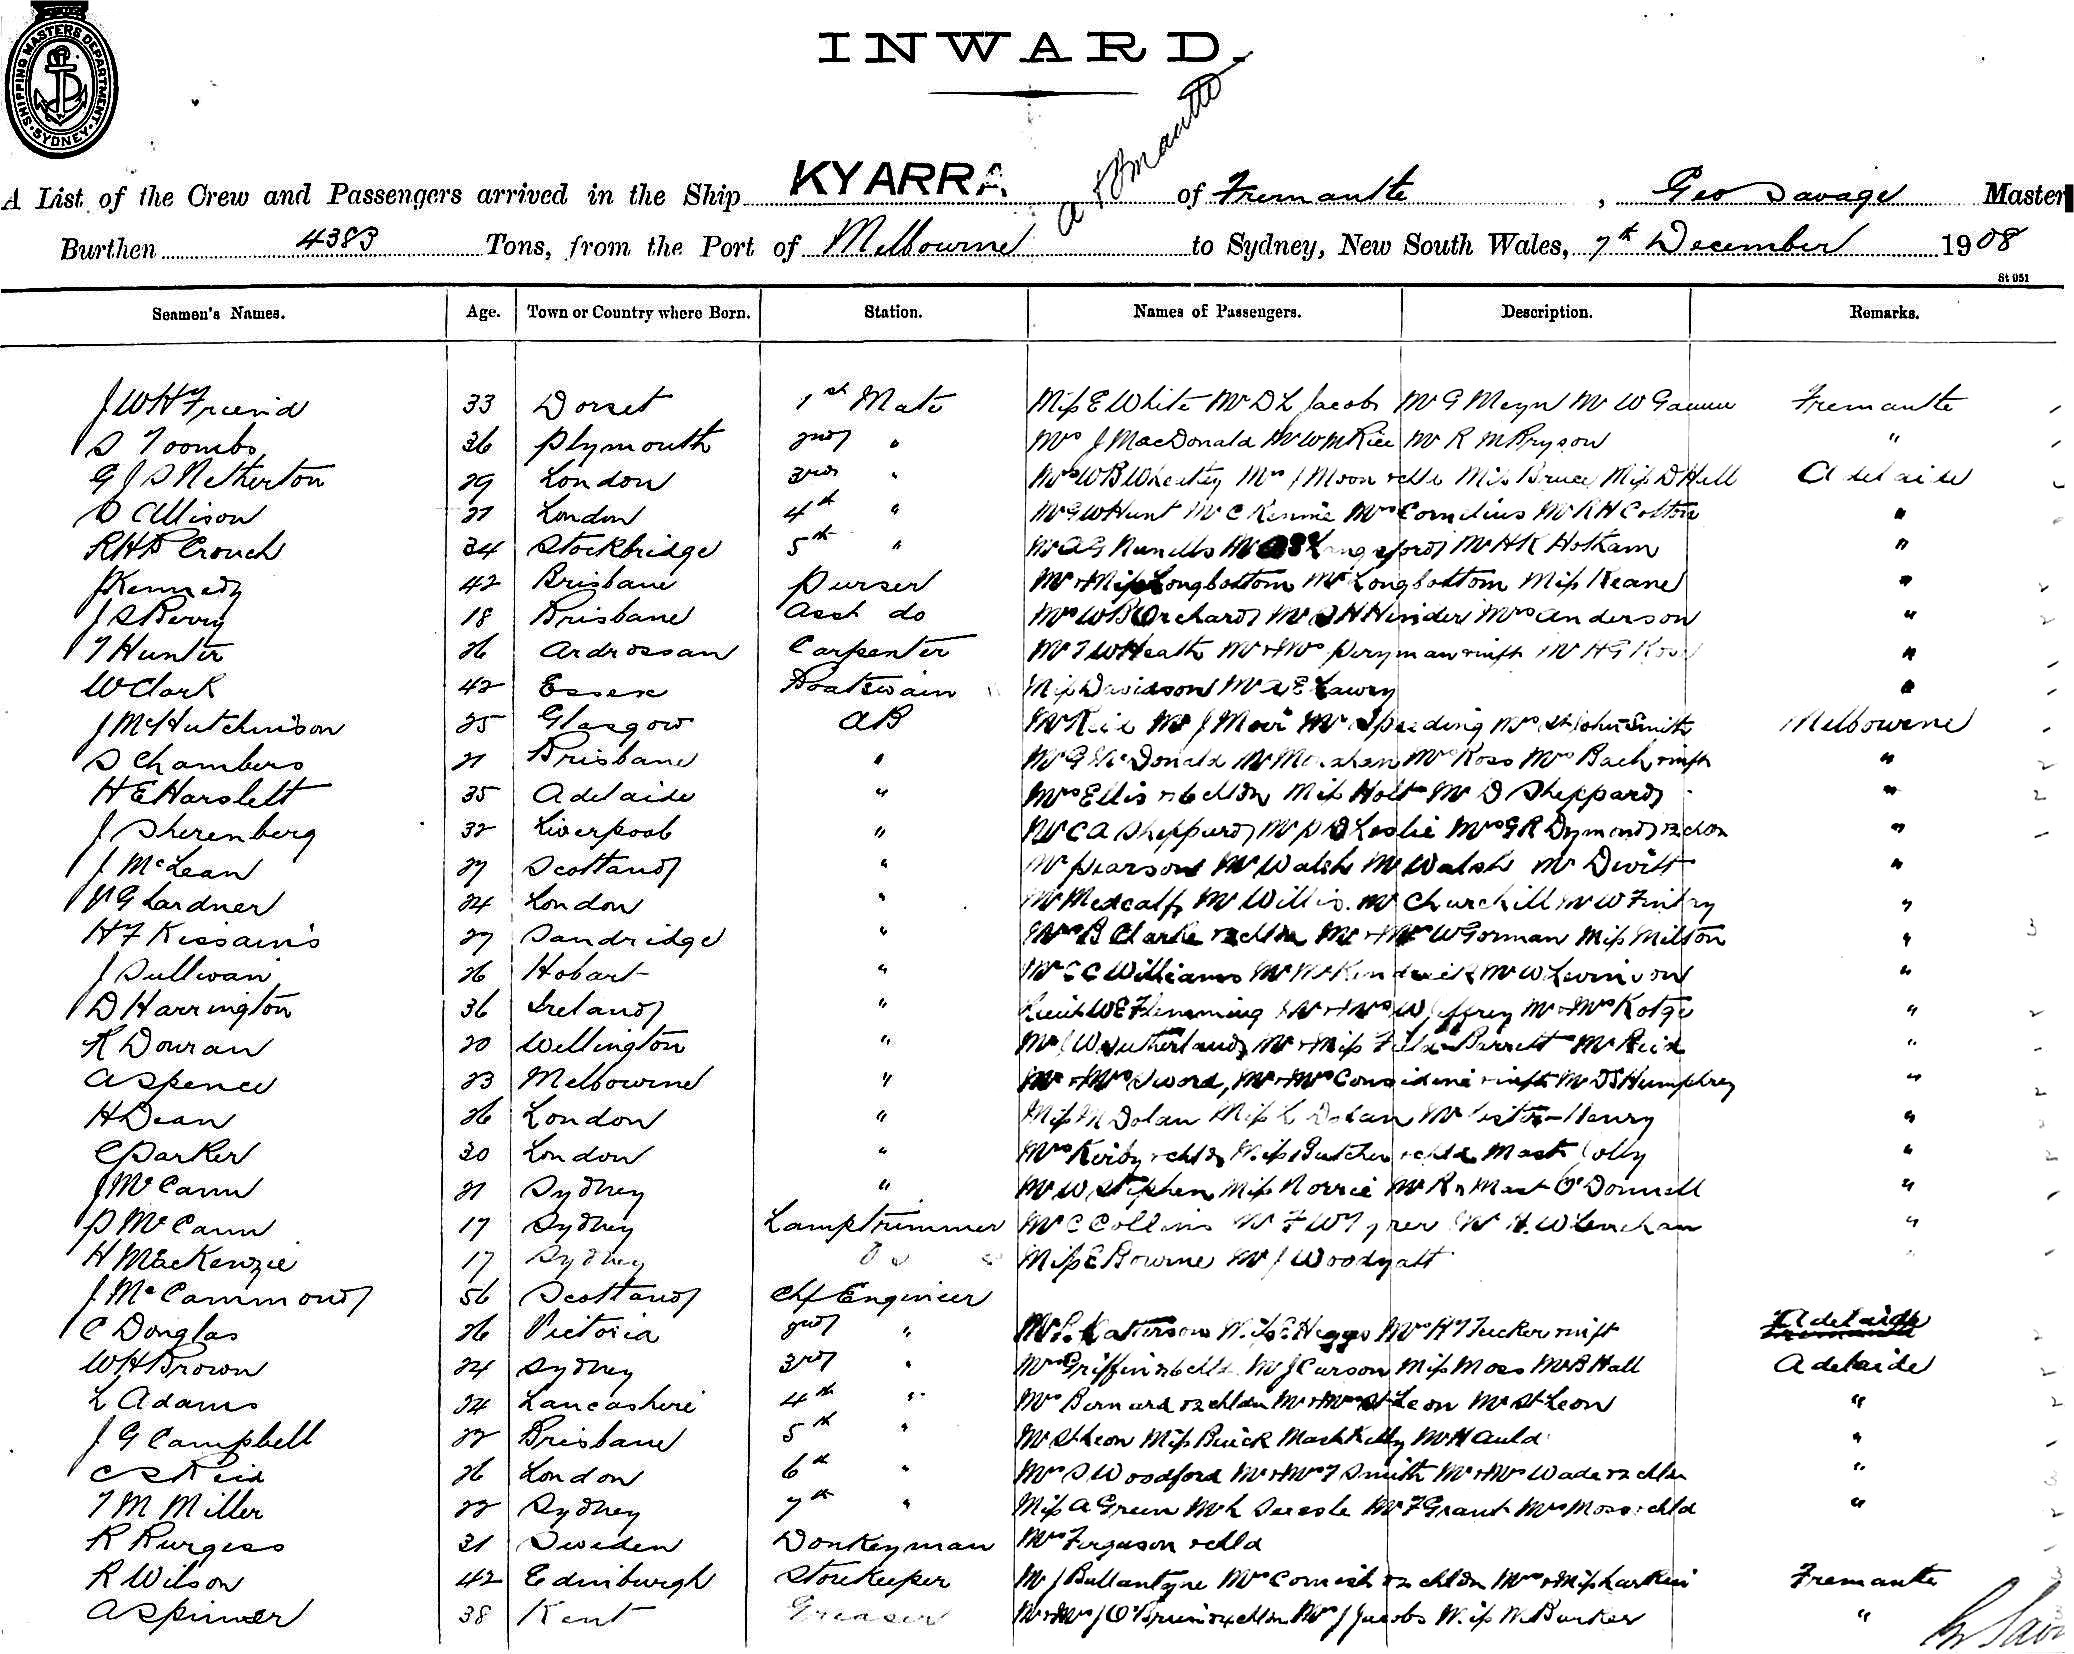 SHIPPING MASTERS DEPARTMENT. SYDNEY.
INWARD.
A List of the Crew and Passengers arrived in the Ship KYARRA of Fremantle, Geo Savage Master
Burthen 4383 Tons, from the Port of Melbourne to Sydney, New South Wales, 7th December 1908
St 051
Seamen's Names. Age. Town or Country where Born. Station. Names of Passengers. Description. Remarks.
J W H Freend 33 Dorset 1st Mate Miss E White Mr D L Jacobs Mr G Meyn Mr W Fremantle
S Toombs 36 Plymouth 2nd " Mrs J MacDonald Mr W M Rice Mr R M Bryson "
G J S Netherton 29 London 3rd " Mrs W B Wheatley Mrs J Moon & chld Miss Bruce Miss D Hill Adelaide
D Allison 21 London 4th " Mr G W Hunt Mr C Rennie Mrs Cornelius Mr R H Cotton "
R H D Crouch 34 Stockbridge 5th " Mr H K Hotham "
J Kennedy 42 Brisbane Purser Mr & Miss Longbottom Mr Longbottom Miss Keane "
J S Berry 18 Brisbane Asst do Mrs W B Orchard Mr S H Hinder Mrs Anderson "
T Hunter 26 Ardrossan Carpenter Mr T W Heath Mr & Mrs Peryman & inft Mr H G Ross "
W Clark 42 Essex Boatswain Miss Davidson Mr A E Lawry "
J McHutchinson 25 Glasgow AB Mr J Moir Mr Speeding Mrs St John Smith Melbourne
S Chambers 21 Brisbane " Mr G McDonald Mr Monahan Mrs Ross Mrs Bach & inft "
H E Harslett 35 Adelaide " Mrs Ellis & 6 chldn Miss Holt Mr D Sheppard "
J Sherenberg 32 Liverpool " Mr C A Sheppard Mr P D Leslie Mrs G R Dymond & 2 chdn "
J McLean 27 Scotland " Mr Pearson Mr Walsh Mr Walsh Mr Devitt "
V G Lardner 24 London " Mr Medcalf Mr Willis Mr Churchill Mr W "
H F Kissains 27 Sandridge " Mrs B Clarke & 2 chldn Mr & Mrs W Gorman Miss Milton "
J Sullivan 26 Hobart " Mr C C Williams Mr McKendrick Mr W Levinson "
D Harrington 36 Ireland " Lieut W E Flemming Mr & Mrs W Jeffrey Mr & Mrs Kotge "
R Douran 20 Wellington " Mr J W Sutherland Mr & Miss Field-Barrett Mr Reid "
A Spence 23 Melbourne " Mr & Mrs Sword, Mr & Mrs Considine & inft Mr D S Humphrey "
H Dean 26 London " Miss M Dolan Miss L Dolan Henry "
C Parker 30 London " Mrs Kirby & chldn Miss Butcher & chld Mast Jolly "
J McCann 21 Sydney " Mr W Stephen Miss Norrie Mr R & Mast O'Donnell "
P McCann 17 Sydney Lamptrimmer Mr C Collins Mr F W Tyrer Mr H. W Lenehan "
H MacKenzie 17 Sydney Do Miss E Bourne Mr J Woodyatt
J McCammond 56 Scotland Chf Engineer
C Douglas 26 Victoria 2nd " Miss E Heggs Mrs H T Tucker & inft Adelaide
W H Brown 24 Sydney 3rd " Mrs Griffin & 6 chld Mr J Carson Miss Moss Mr B Hall Adelaide
L Adams 24 Lancashire 4th " Mrs Bernard & 2 chldn Mr & Mrs St Leon Mr St Leon "
J G Campbell 22 Brisbane 5th " Mr St Leon Miss Buick Mast Kelly Mr H Auld "
C S Reid 26 London 6th " Mrs S Woodford Mr & Mrs T Smith Mr & Mrs Wade & 2 chldn "
T M Miller 22 Sydney 7th " Miss A Green Mr L Mr F Grant Mrs Moss & chld "
R Burgess 31 Sweden Donkeyman Mrs Ferguson & chld
R Wilson 42 Edinburgh Storekeeper Mr J Ballantyne Mrs Cornish & 2 chldn Mrs & Miss Larkin Fremantle
A Spinner 38 Kent Greaser Mr & Mrs J O'Brien & 4 chldn Mrs J Jacobs Miss W Barker "